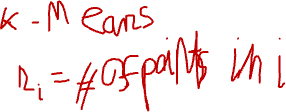 K-Means
n_i = # of points in i